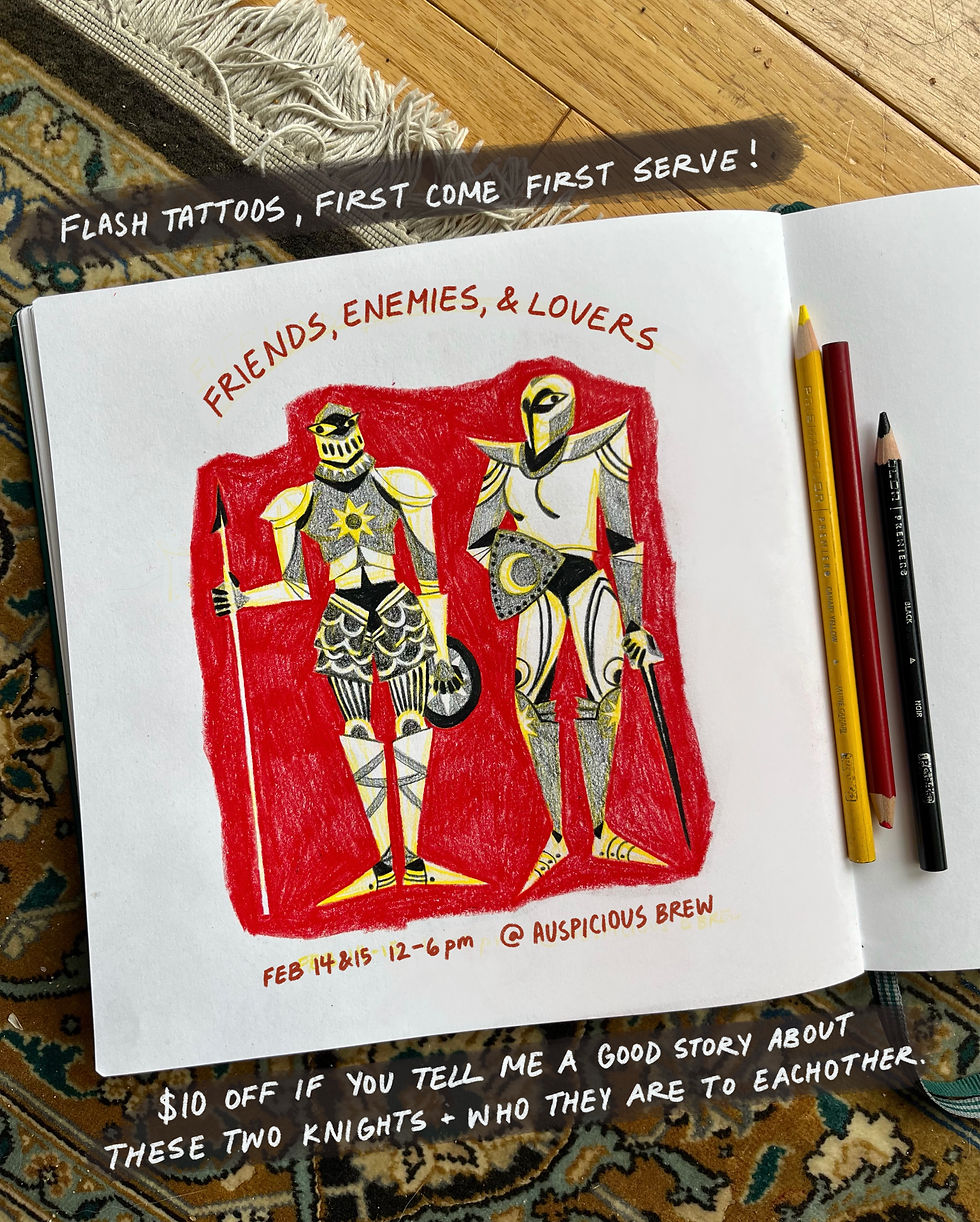 FLASH TATTOOS, FIRST COME FIRST SERVE!
FRIENDS, ENEMIES, & LOVERS
FEB 14 & 15 12-6 pm @ AUSPICIOUS BREW
$10 OFF IF YOU TELL ME A GOOD STORY ABOUT
THESE TWO KNIGHTS + WHO THEY ARE TO EACHOTHER.
PRISMACOLOR PREMIER CANARY YELLOW
PREMIER BLACK NOIR